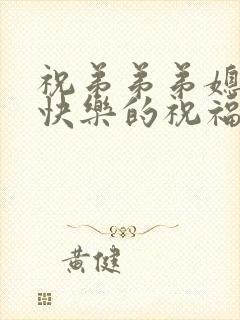 祝弟弟弟媳
快樂的祝福
黄健